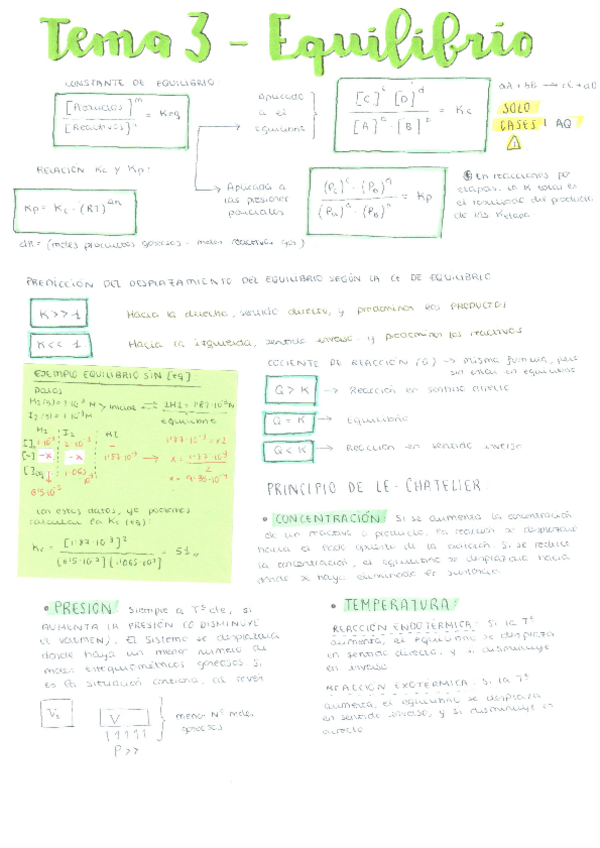 Tema 3 - Equilibrio
CONSTANTE DE EQUILIBRIO
[Productos]^m / [Reactivos]^n = Keq
Aplicado a el equilibrio
[C]^c [D]^d / [A]^a [B]^b = Kc
aA + bB → cC + dD
SOLO
GASES AQ
RELACIÓN Kc Y Kp:
Kp = Kc · (RT)^Δn
Aplicada a las presiones parciales
= Kp
En reacciones por etapas, la K total es el resultado del producto de las K etapa
(moles productos gaseosos - moles reactivos gas)
PREDICCIÓN DEL DESPLAZAMIENTO DEL EQUILIBRIO SEGÚN LA CTE DE EQUILIBRIO
K >> 1
Hacia la derecha, sentido directo, y predominan los PRODUCTOS
K << 1
Hacia la izquierda, sentido inverso y predominan los reactivos
EJEMPLO EQUILIBRIO SIN [eq]
DATOS
Inicios
equilibrio
H2 I2 HI
-x -x
Con estos datos, ya podemos
calcular la Kc (eq):
COCIENTE DE REACCIÓN (Q) → Misma fórmula, pero
sin estar en equilibrio
Q > K → Reacción en sentido directo
Q = K → Equilibrio
Q < K → Reacción en sentido inverso
PRINCIPIO DE LE-CHATELIER
• CONCENTRACIÓN: Si se aumenta la concentración
de un reactivo o producto, la reacción se desplazará
hacia el lado opuesto de la adición. Si se reduce
la concentración, el equilibrio se desplaza hacia
donde se haya eliminado la sustancia
• PRESIÓN: Siempre a Tª cte, si
AUMENTA LA PRESIÓN (O DISMINUYE
EL VOLUMEN), El sistema se desplazará
donde haya un menor número de
moles estequiométricos gaseosos. Si
es la situación contraria, al revés
V
menor Nº moles
gaseosos
P >>
• TEMPERATURA:
REACCIÓN ENDOTÉRMICA: Si la Tª
aumenta, el equilibrio se desplaza
en sentido directo, y si disminuye
en inverso
REACCIÓN EXOTÉRMICA: Si la Tª
aumenta, el equilibrio se desplaza
en sentido inverso, y si disminuye en
directo